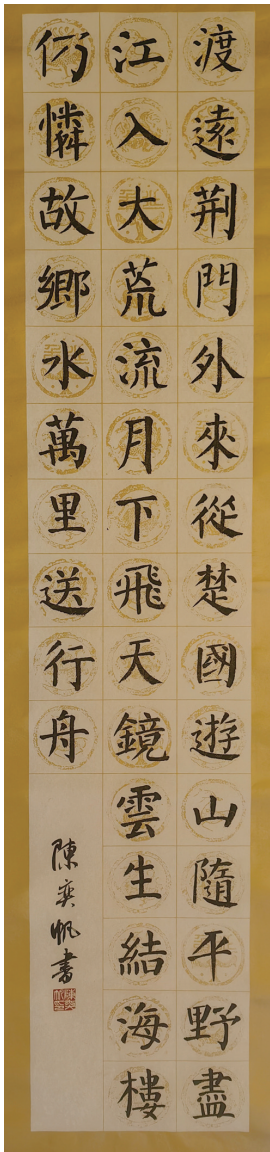 渡遠荆門外來從楚國遊山隨平野盡
江入大荒流月下飛天鏡雲生結海樓
仍憐故鄉水萬里送行舟
陳奕帆書